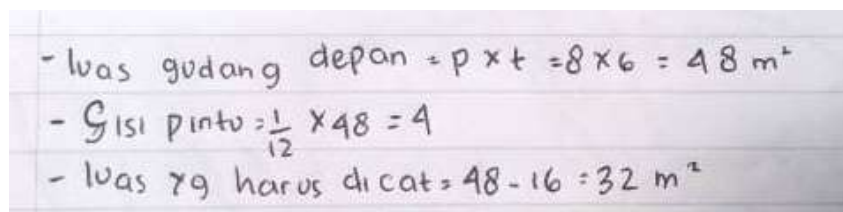 - luas gudang depan = p x t = 8 x 6 = 48 m²
- Sisi pintu = 1/12 x 48 = 4
- luas yg harus di cat = 48 - 16 = 32 m²